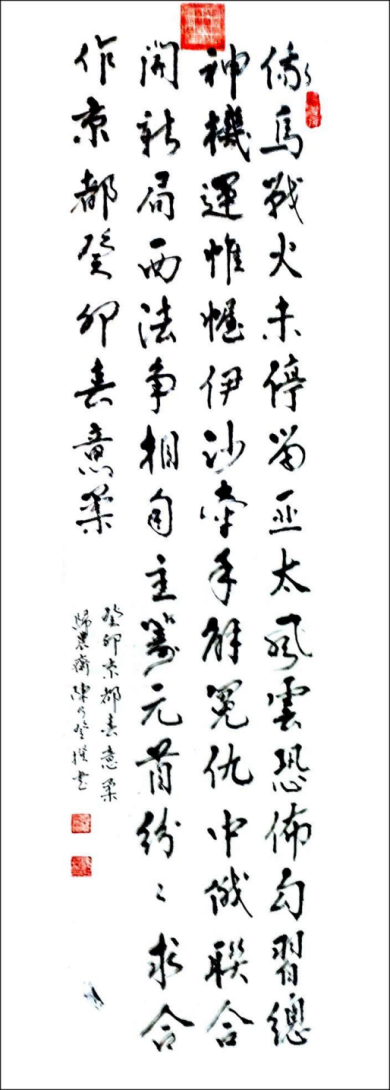 俄烏戰火未停留亞太風雲恐佈勾習總
神機運帷幄伊沙牽手解冤仇中俄聯合
開新局西法爭相自主籌元首紛〻求合
作京都癸卯春意柔
癸卯京都春意柔
歸農齋陳乃登撰書